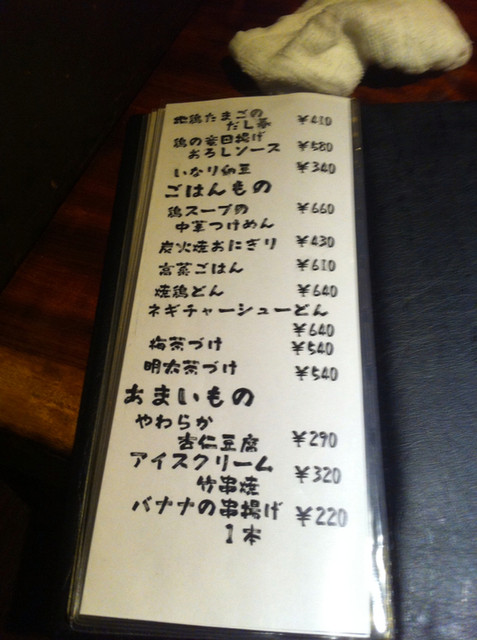 地鶏たまごの
だし巻 ¥410
鶏の竜田揚げ
おろしソース ¥580
いなり納豆 ¥340
ごはんもの
鶏スープの ¥660
中華つけめん
炭火焼おにぎり ¥430
高菜ごはん ¥610
焼鶏どん ¥640
ネギチャーシューどん
¥640
梅茶づけ ¥540
明太茶づけ ¥540
あまいもの
やわらか
杏仁豆腐 ¥290
アイスクリーム ¥320
竹串焼
バナナの串揚げ ¥220
1本